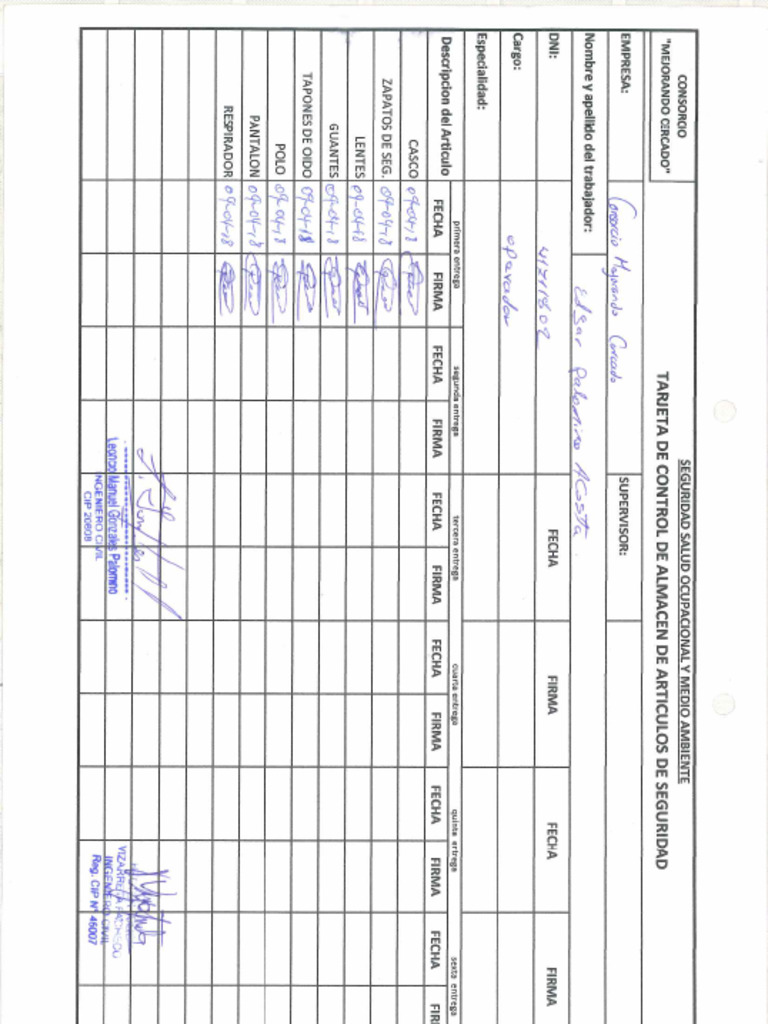 CONSORCIO
"MEJORANDO CERCADO"
SEGURIDAD SALUD OCUPACIONAL Y MEDIO AMBIENTE
TARJETA DE CONTROL DE ALMACEN DE ARTICULOS DE SEGURIDAD
EMPRESA: Consorcio Mejorando Cercado SUPERVISOR:
Nombre y apellido del trabajador: Edgar Palomino Acosta
DNI: FECHA FIRMA FECHA FIRMA
Cargo: operador
Especialidad:
primera entrega segunda entrega tercera entrega cuarta entrega quinta entrega sexta entrega
Descripcion del Articulo FECHA FIRMA FECHA FIRMA FECHA FIRMA FECHA FIRMA FECHA FIRMA FECHA FIR
CASCO 09-04-18
ZAPATOS DE SEG. 09-04-18
LENTES 09-04-18
GUANTES 09-04-18
TAPONES DE OIDO 09-04-18
POLO 09-04-18
PANTALON 09-04-18
RESPIRADOR 09-04-18
Leoncio Manuel Gonzales Palomino
INGENIERO CIVIL
CIP 20808
VIZARRETA PACHECO
INGENIERO CIVIL
Reg. CIP N° 45007